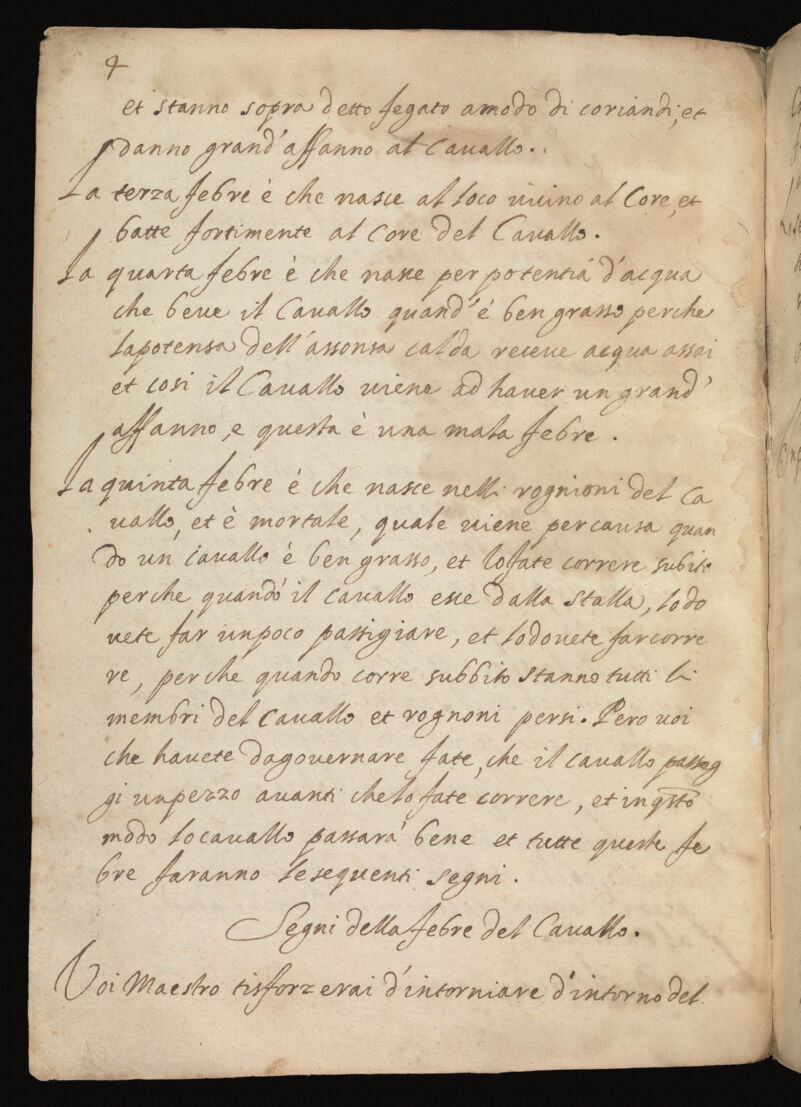 4
et stanno sopra detto fegato amodo di coriandi, et
danno grand'affanno al Cauallo.
La terza febre è che nasce al loco uicino al Core, et
batte fortimente al Core del Cauallo.
La quarta febre è che nasce per potentia d'acqua
che beue il Cauallo quand'é ben grasso perche
lapotensa dell'assonsa calda receue acqua assai
et cosi il Cauallo uiene ad hauer un grand'
affanno, e questa è una mala febre.
La quinta febre é che nasce nelli rognioni del Ca
uallo, et è mortale, quale uiene percausa quan
do un Cauallo è ben grasso, et lofate correre subito
perche quando il cauallo esce dalla stalla, lodo
uete far unpoco passigiare, et lodouete farcorre
re, perche quando corre subbito stanno tutti li
membri del Cauallo et rognoni persi. Pero uoi
che hauete dagouernare fate, che il cauallo passeg
gi unpezzo auanti chelo fate correre, et in qsto
modo locauallo passarà bene et tutte queste fe
bre faranno lesequenti segni.
Segni della febre del Cauallo.
Voi Maestro tisforzerai d'intorniare d'intorno del